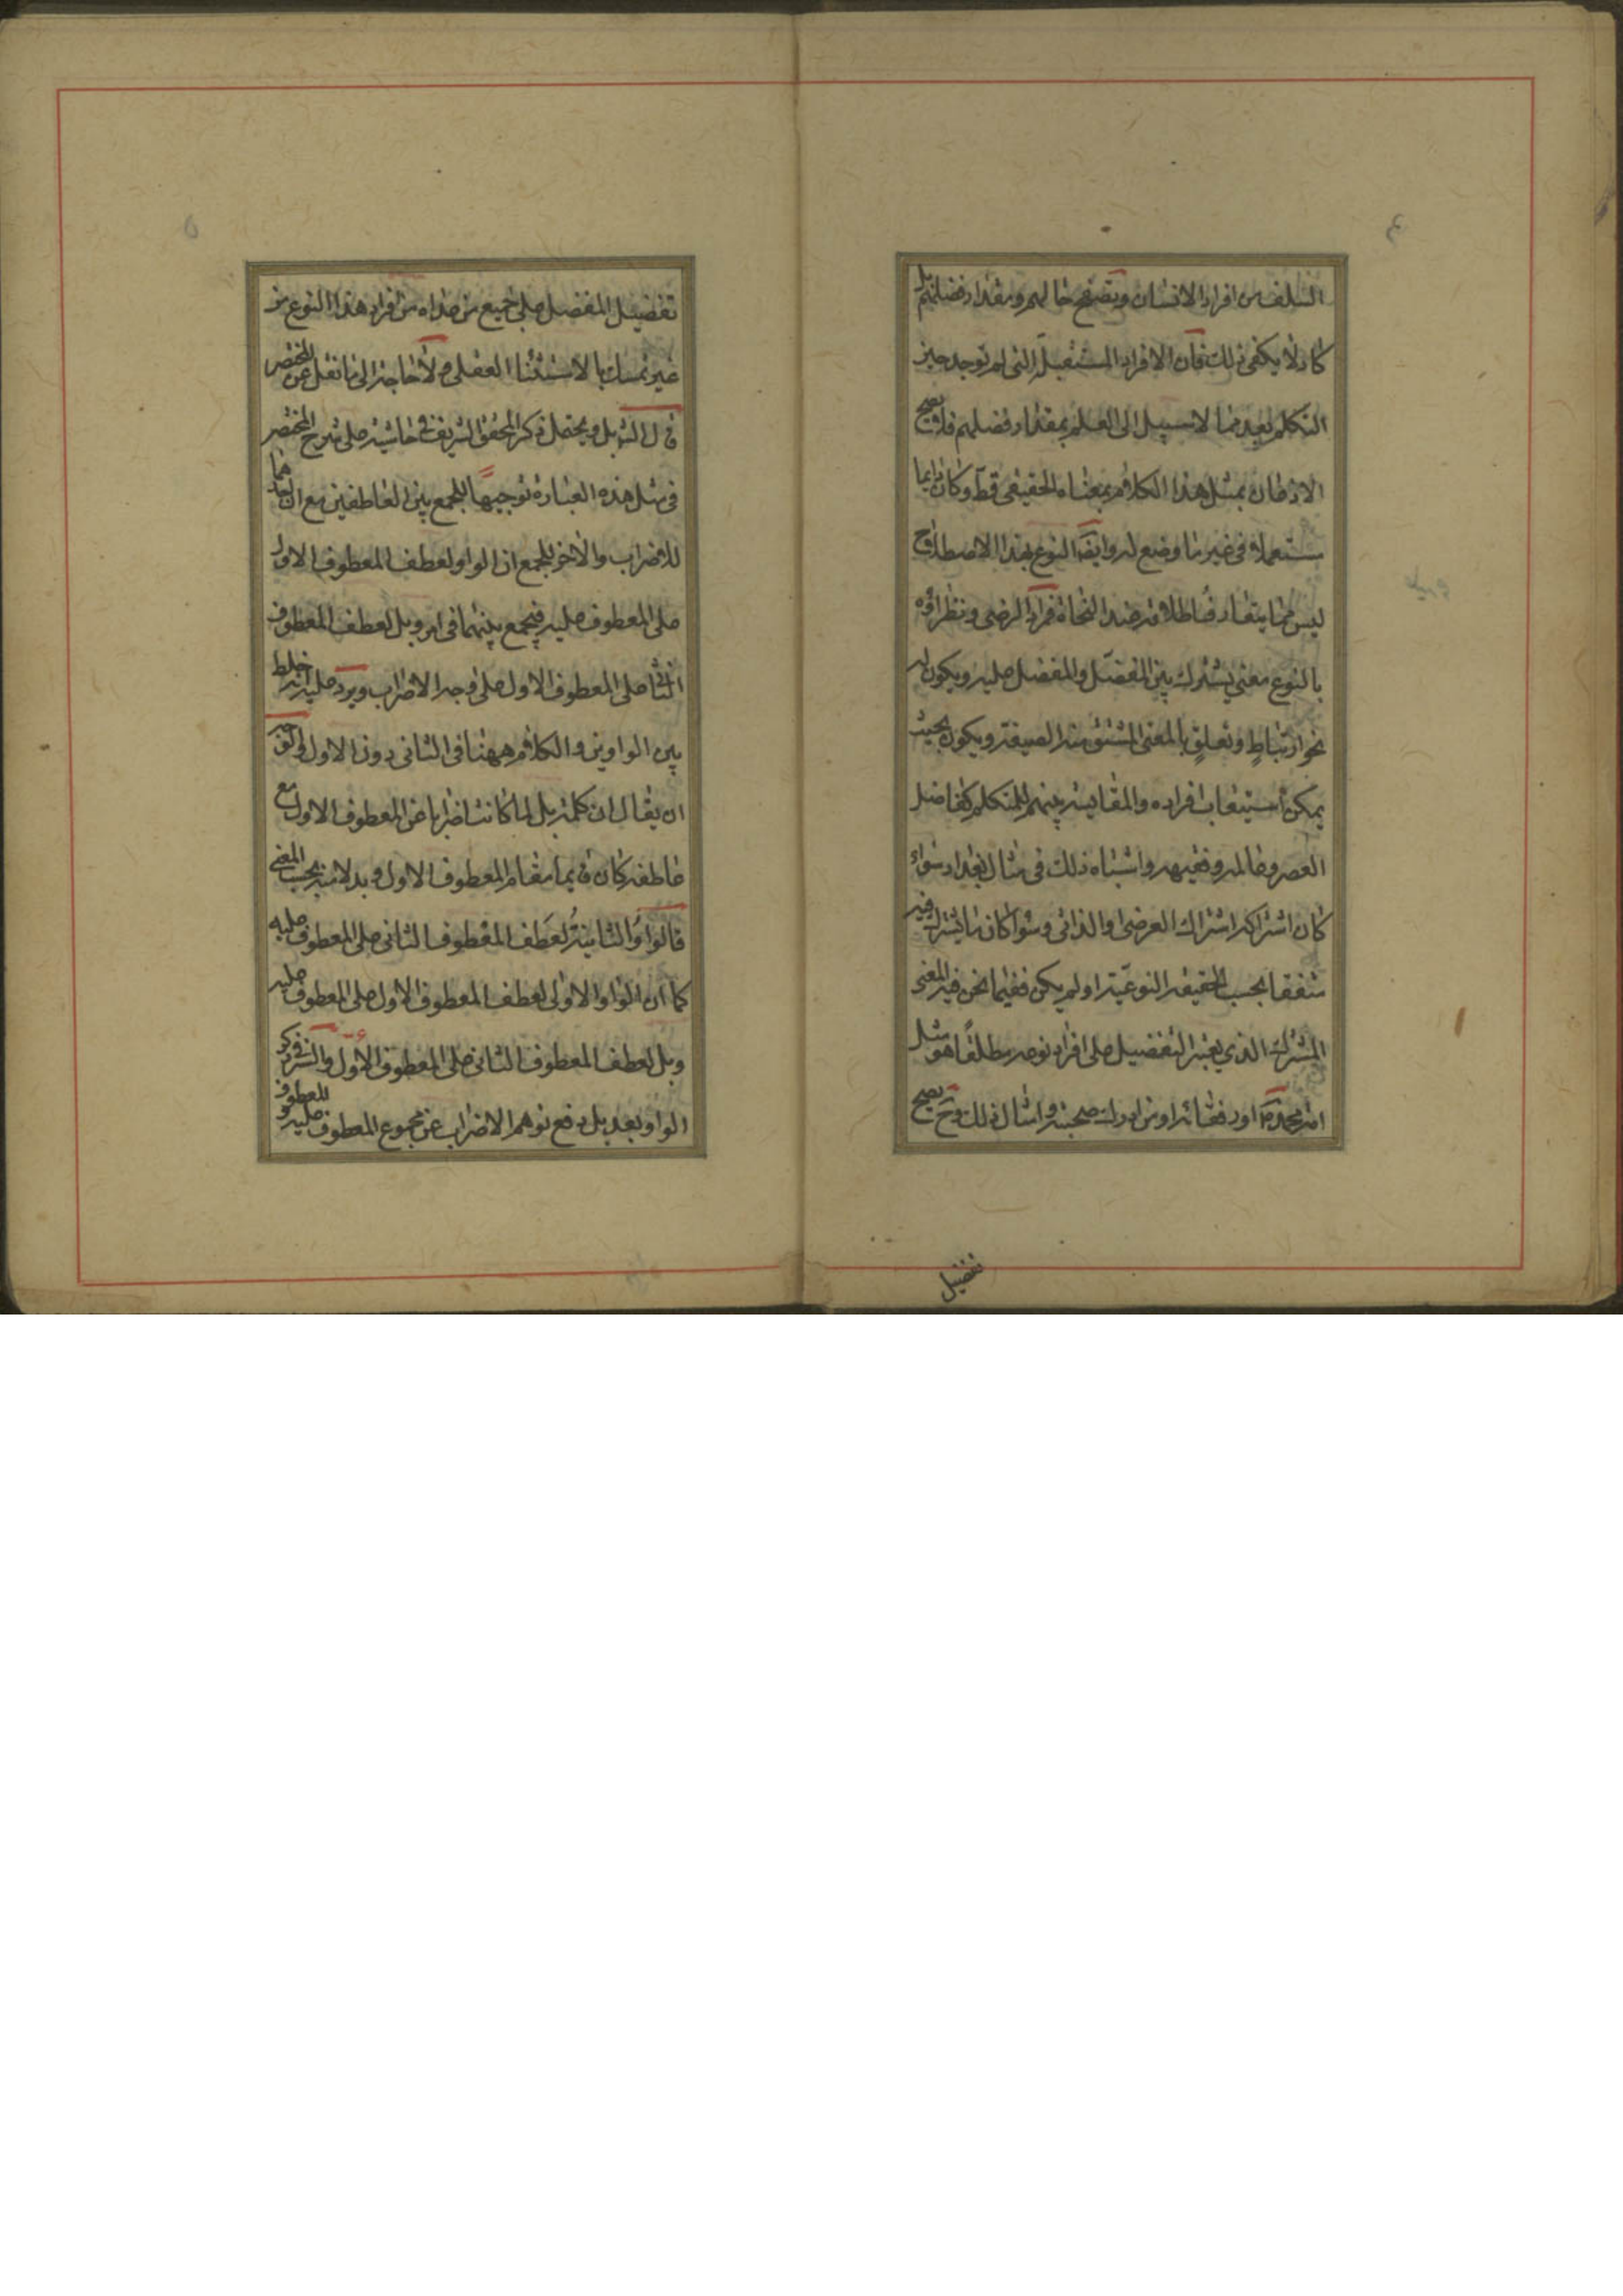 ٤
السلف من افراد الانسان وتصفح حالهم ومقدار فضلهم بل
كاد لا يكفى ذلك فان الافراد المستقبلة التى لم توجد حين
التكلم بعد مما لا سبيل الى العلم بمقدار فضلهم فلا يصح
الاذعان بمثل هذا الكلام بمعناه الحقيقى قط وكان دايما
مستعملا فى غير ما وضع له وايضا النوع بهذا الاصطلاح
ليس مما يتعارف اطلاقه عند النحاة فمراد الرضى ونظرائه
بالنوع معنى يشترك بين المفضل والمفضل عليه ويكون له
نحو ارتباط وتعلق بالمعنى المشتق منه الصيغة ويكون بحيث
يمكن استيعاب افراده والمقايسة بينهم للمتكلم كفاضل
العصر وعالمه وفقيهه واشباه ذلك فى مثال بغداد سواء
كان اشتراكه اشتراك العرضى او الذاتى وسواء كان ما يشترك فيه
متفقا بحسب الحقيقة النوعية او لم يكن ففيما نحن فيه المعنى
المشترك الذي يعتبر التفضيل على افراد نوعه مطلقا هو مثل
امة محمد ص او رفقائه او من ادرك صحبته وامثال ذلك وح يصح
تفضيل
٥
تفضيل المفضل على جميع من عداه من افراد هذا النوع من
غير تمسك بالاستثناء العقلى ولا حاجة الى ما نقل عن المختصر
قال بل ويحتمل ذكر المحقق الشريف فى حاشيته على شرح المختصر
فى مثل هذه العبارة توجيها للجمع بين العاطفين مع ان احدهما
للاضراب والاخر للجمع ان الواو لعطف المعطوف الاول
على المعطوف عليه فيجمع بينهما فى امر وبل لعطف المعطوف
الثانى على المعطوف الاول على وجه الاضراب ويرد عليه انه خلط
بين الواوين والكلام ههنا فى الثانى دون الاول
ان يقال ان كلمة بل لما كانت اضرابا عن المعطوف الاول مع
عاطفه كان قايما مقام المعطوف الاول وبدلا منه بحسب المعنى
فالواو الثانية لعطف المعطوف الثانى على المعطوف عليه
كما ان الواو الاولى لعطف المعطوف الاول على المعطوف عليه
وبل لعطف المعطوف الثانى على المعطوف الاول والسر فى ذكر
الواو بعد بل دفع توهم الاضراب عن مجموع المعطوف عليه و المعطوف